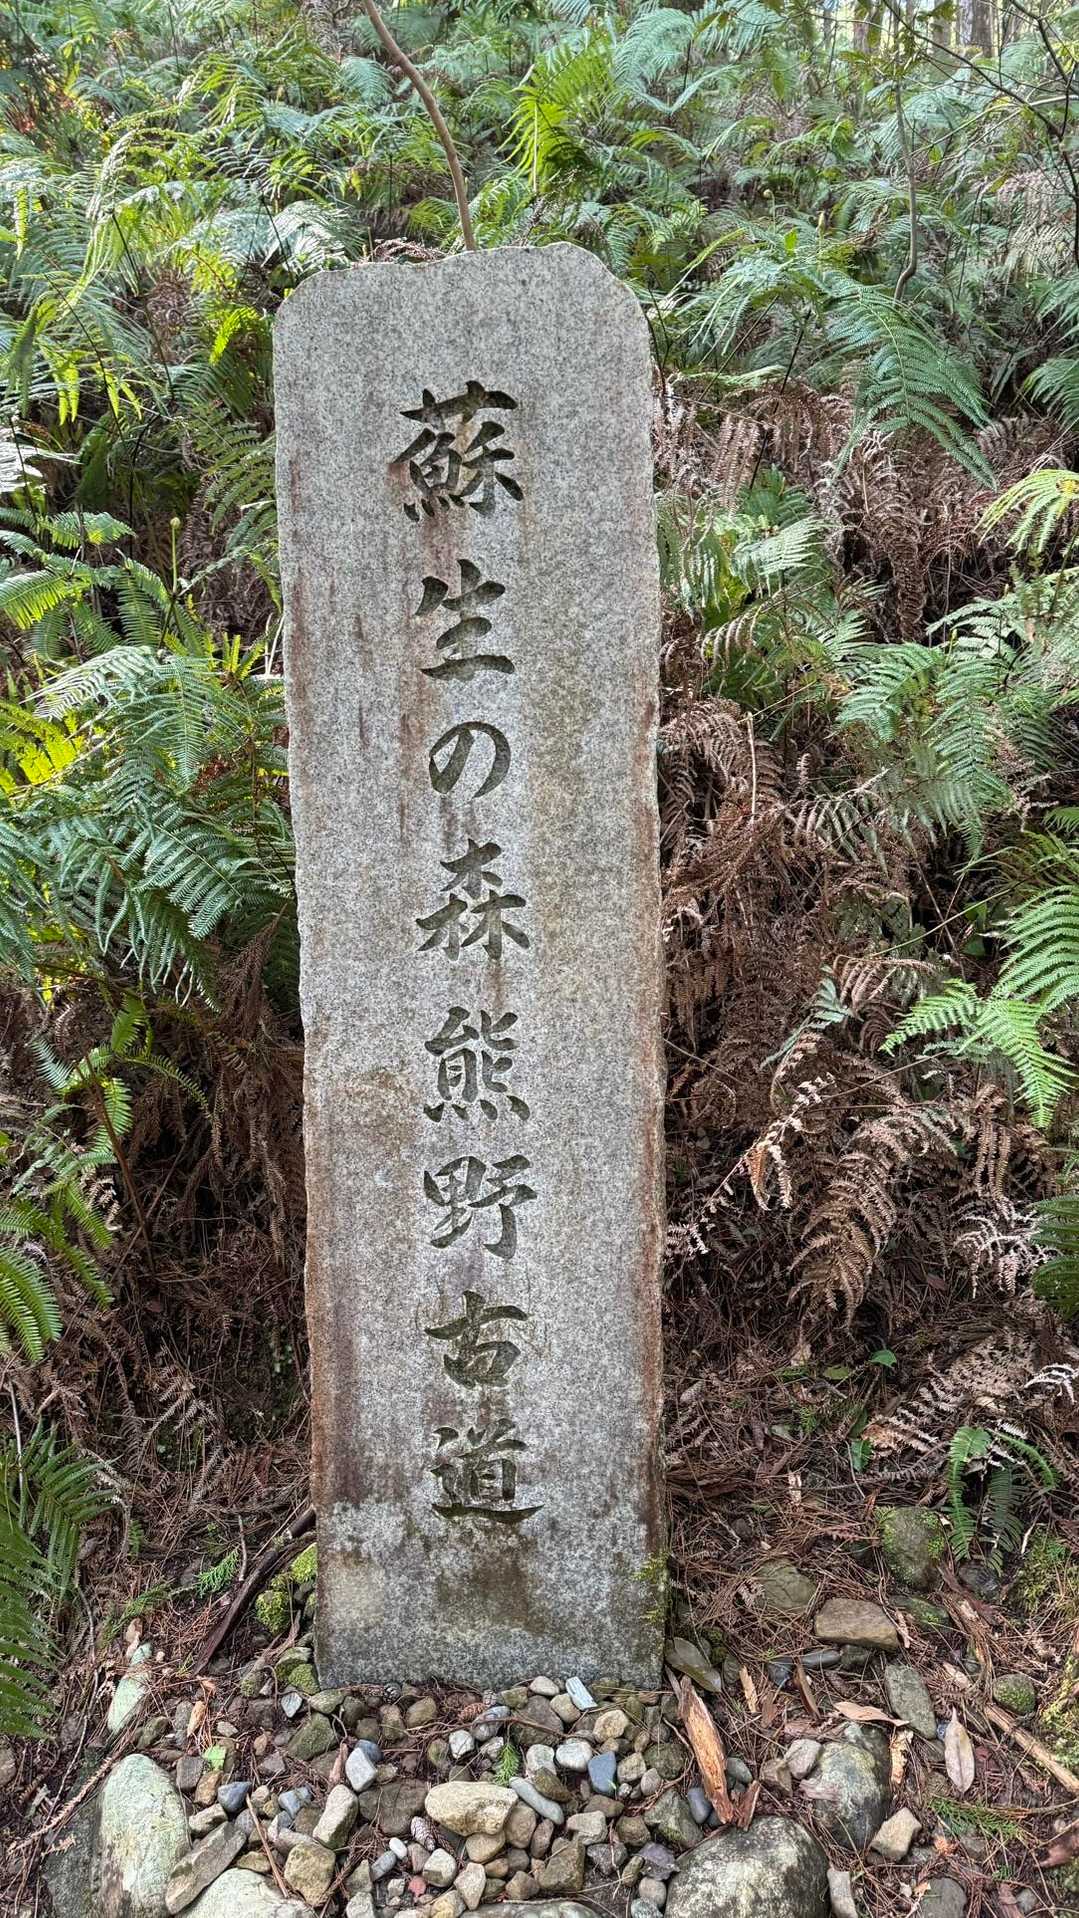 蘇生の森熊野古道